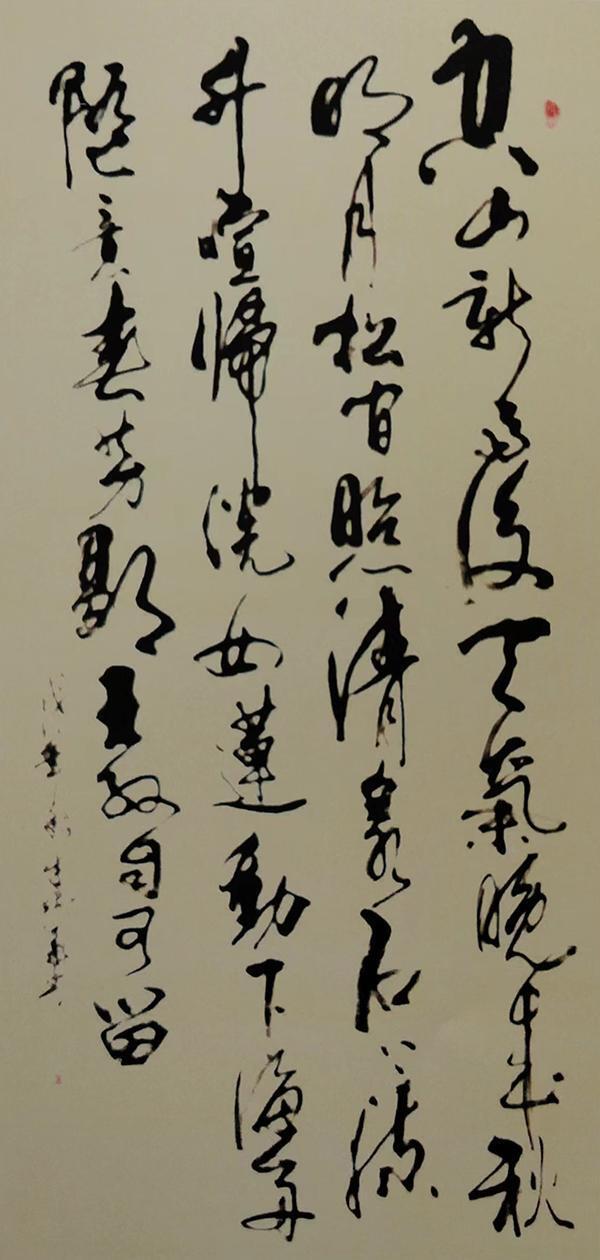 空山新雨後天氣晚來秋
明月松間照清泉石上流
竹喧歸浣女蓮動下漁舟
隨意春芳歇王孫自可留